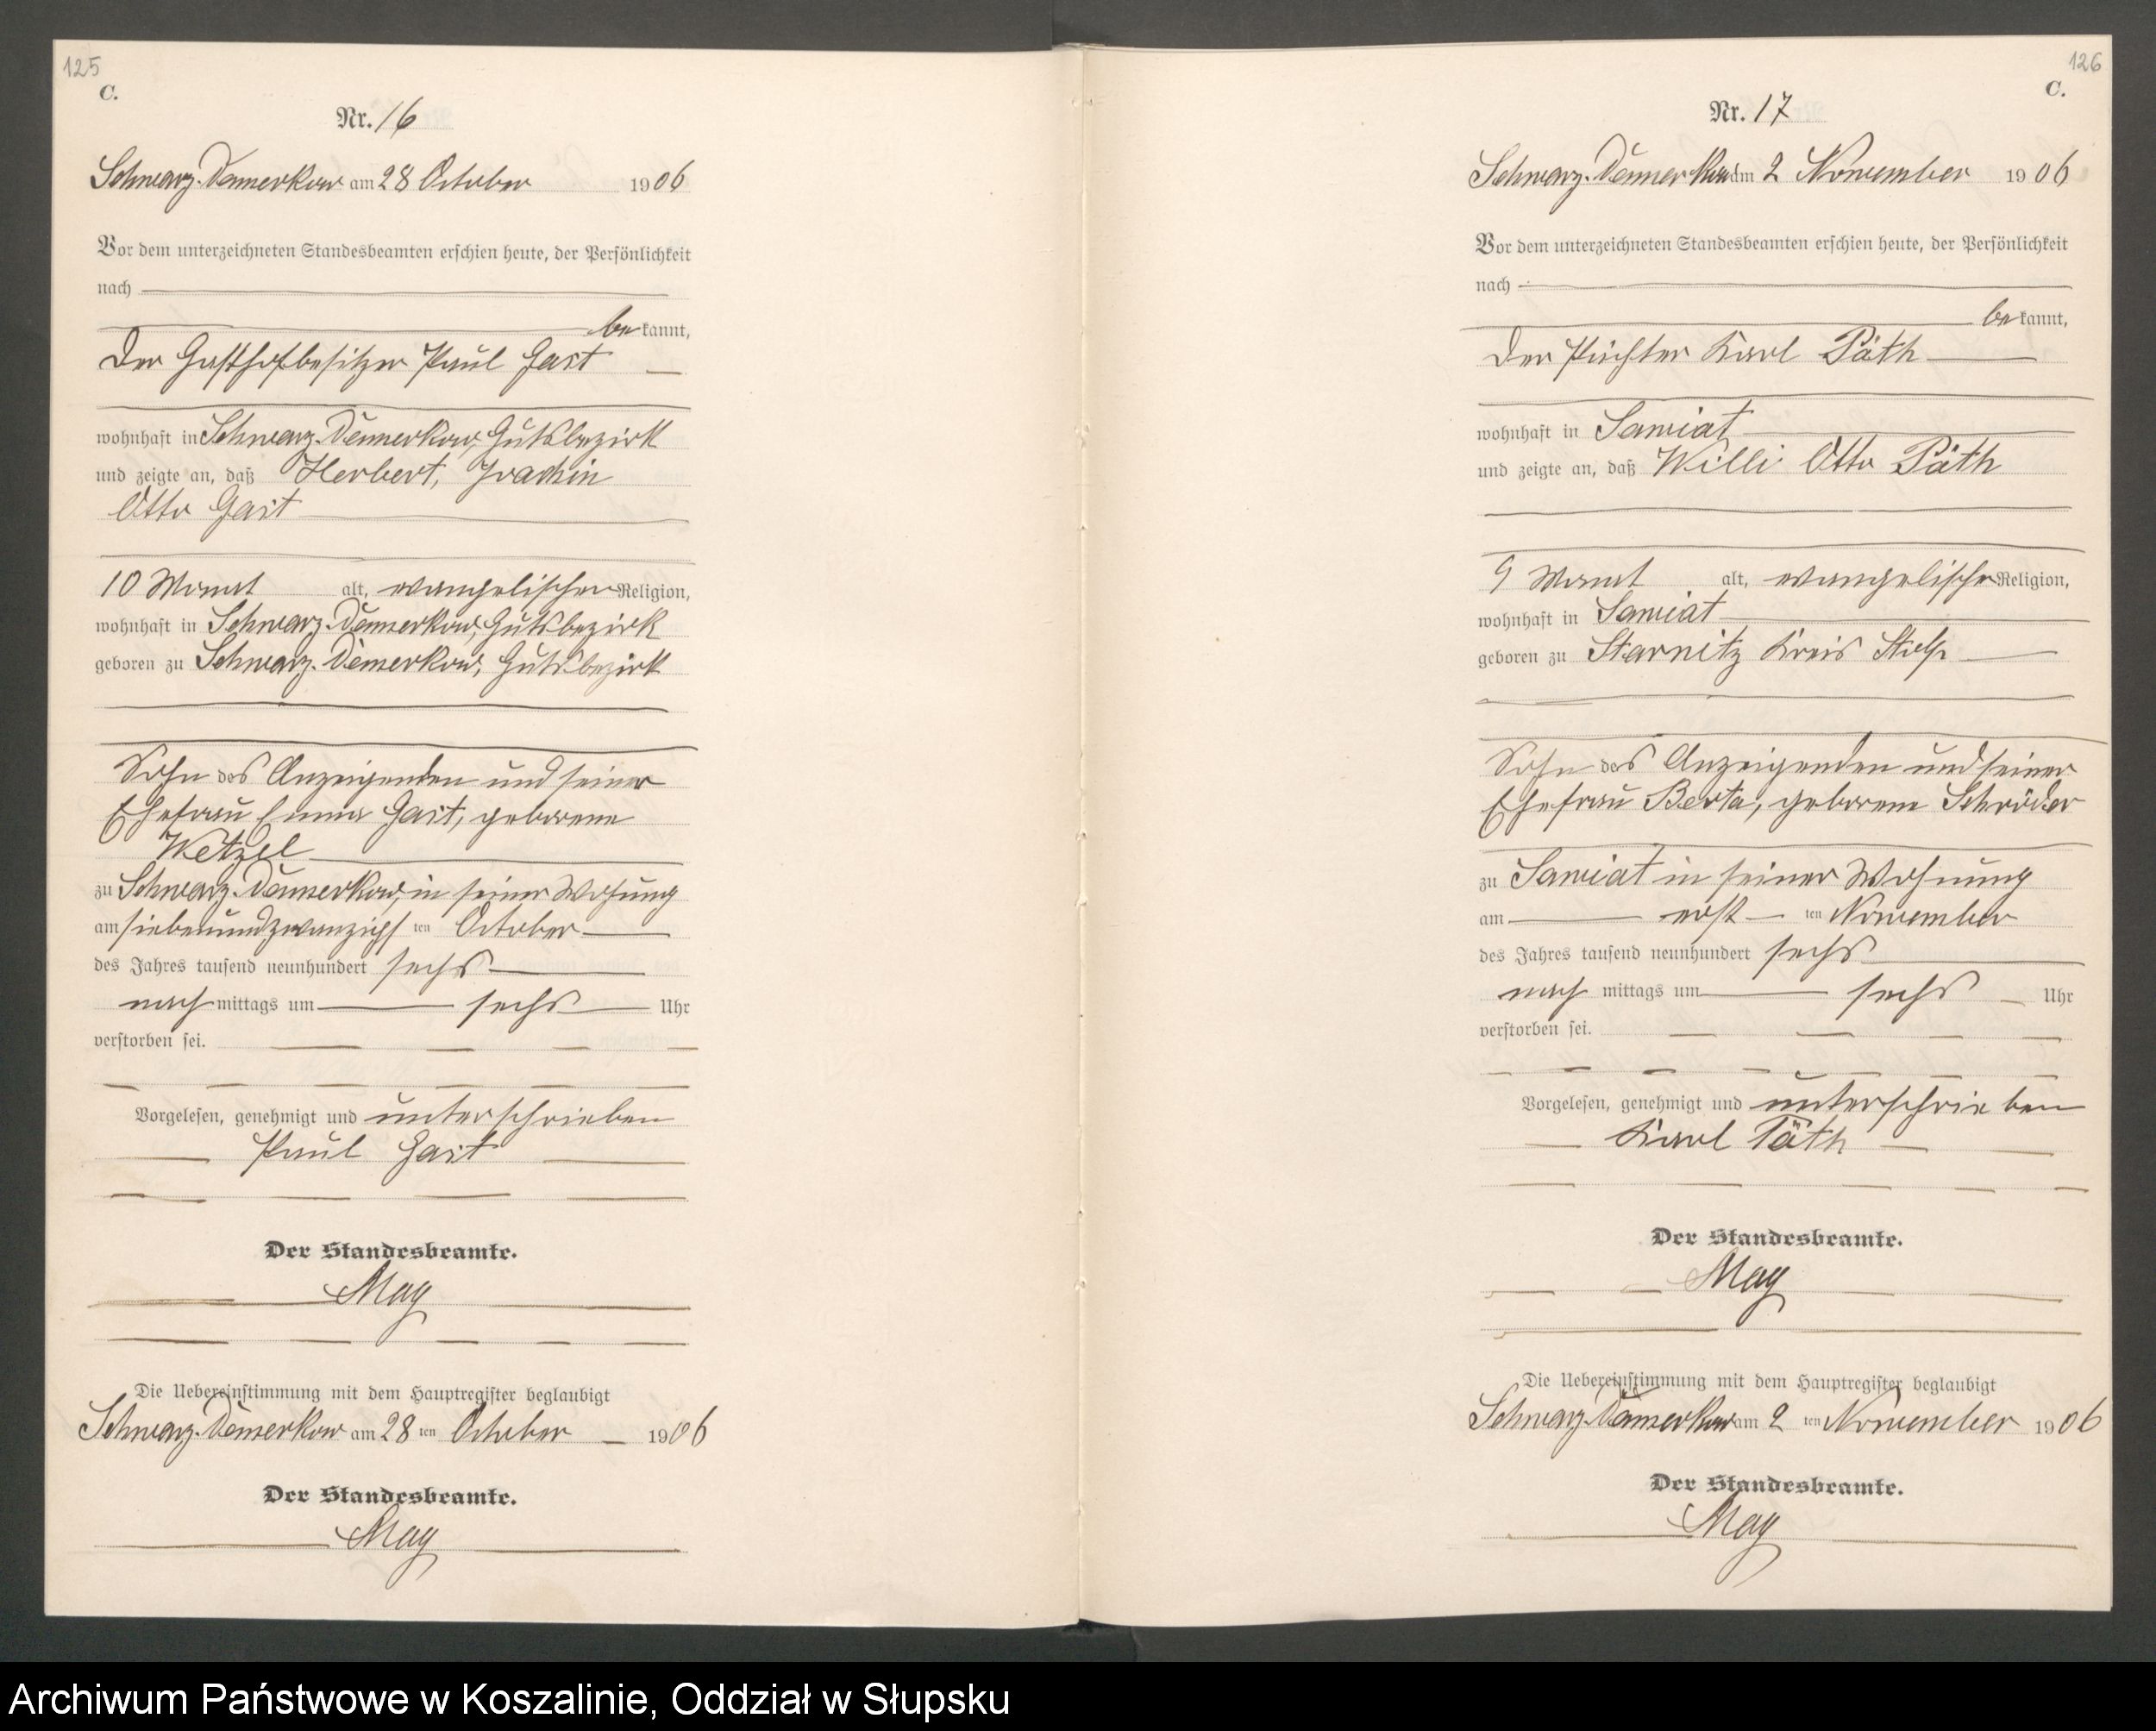 125
C.
Nr. 16
Schwarz-Damerkow am 28 October 1906
Vor dem unterzeichneten Standesbeamten erschien heute, der Persönlichkeit
nach
bekannt,
der Gasthofbesitzer Paul Gast
wohnhaft in Schwarz-Damerkow, Gutsbezirk
und zeigte an, daß Herbert, Joachin
Otto Gast
10 Monat alt, evangelischer Religion,
wohnhaft in Schwarz-Damerkow, Gutsbezirk
geboren zu Schwarz-Damerkow, Gutsbezirk
Sohn des Anzeigenden und seiner
Ehefrau Emma Gast, geborene
Wetzel
zu Schwarz-Damerkow, in seiner Wohnung
am siebenundzwanzigsten October
des Jahres tausend neunhundert sechs
nachmittags um sechs Uhr
verstorben sei.
Vorgelesen, genehmigt und unterschrieben
Paul Gast
Der Standesbeamte.
May
Die Uebereinstimmung mit dem Hauptregister beglaubigt
Schwarz-Damerkow am 28ten October 1906
Der Standesbeamte.
May
126
C.
Nr. 17
Schwarz-Damerkow am 2 November 1906
Vor dem unterzeichneten Standesbeamten erschien heute, der Persönlichkeit
nach
bekannt,
der Pächter Karl Päth
wohnhaft in Sawiat
und zeigte an, daß Willi Otto Päth
9 Monat alt, evangelischer Religion,
wohnhaft in Sawiat
geboren zu Starnitz Kreis Stolp
Sohn des Anzeigenden und seiner
Ehefrau Berta, geborene Schröder
zu Sawiat in seiner Wohnung
am ersten November
des Jahres tausend neunhundert sechs
nachmittags um sechs Uhr
verstorben sei.
Vorgelesen, genehmigt und unterschrieben
Karl Päth
Der Standesbeamte.
May
Die Uebereinstimmung mit dem Hauptregister beglaubigt
Schwarz-Damerkow am 2ten November 1906
Der Standesbeamte.
May
Archiwum Państwowe w Koszalinie, Oddział w Słupsku